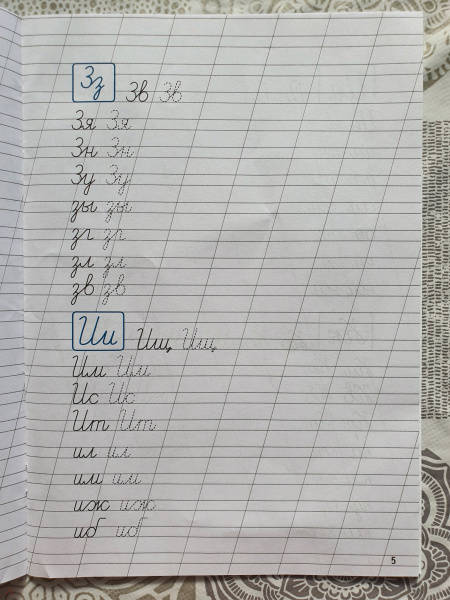 Зз Зв Зв
Зя Зя
Зн Зн
Зу Зу
зы зы
зг зг
зл зл
зв зв
Ии Ищ Ищ
Им Им
Ис Ис
Ит Ит
ил ил
им им
иж иж
иб иб
5